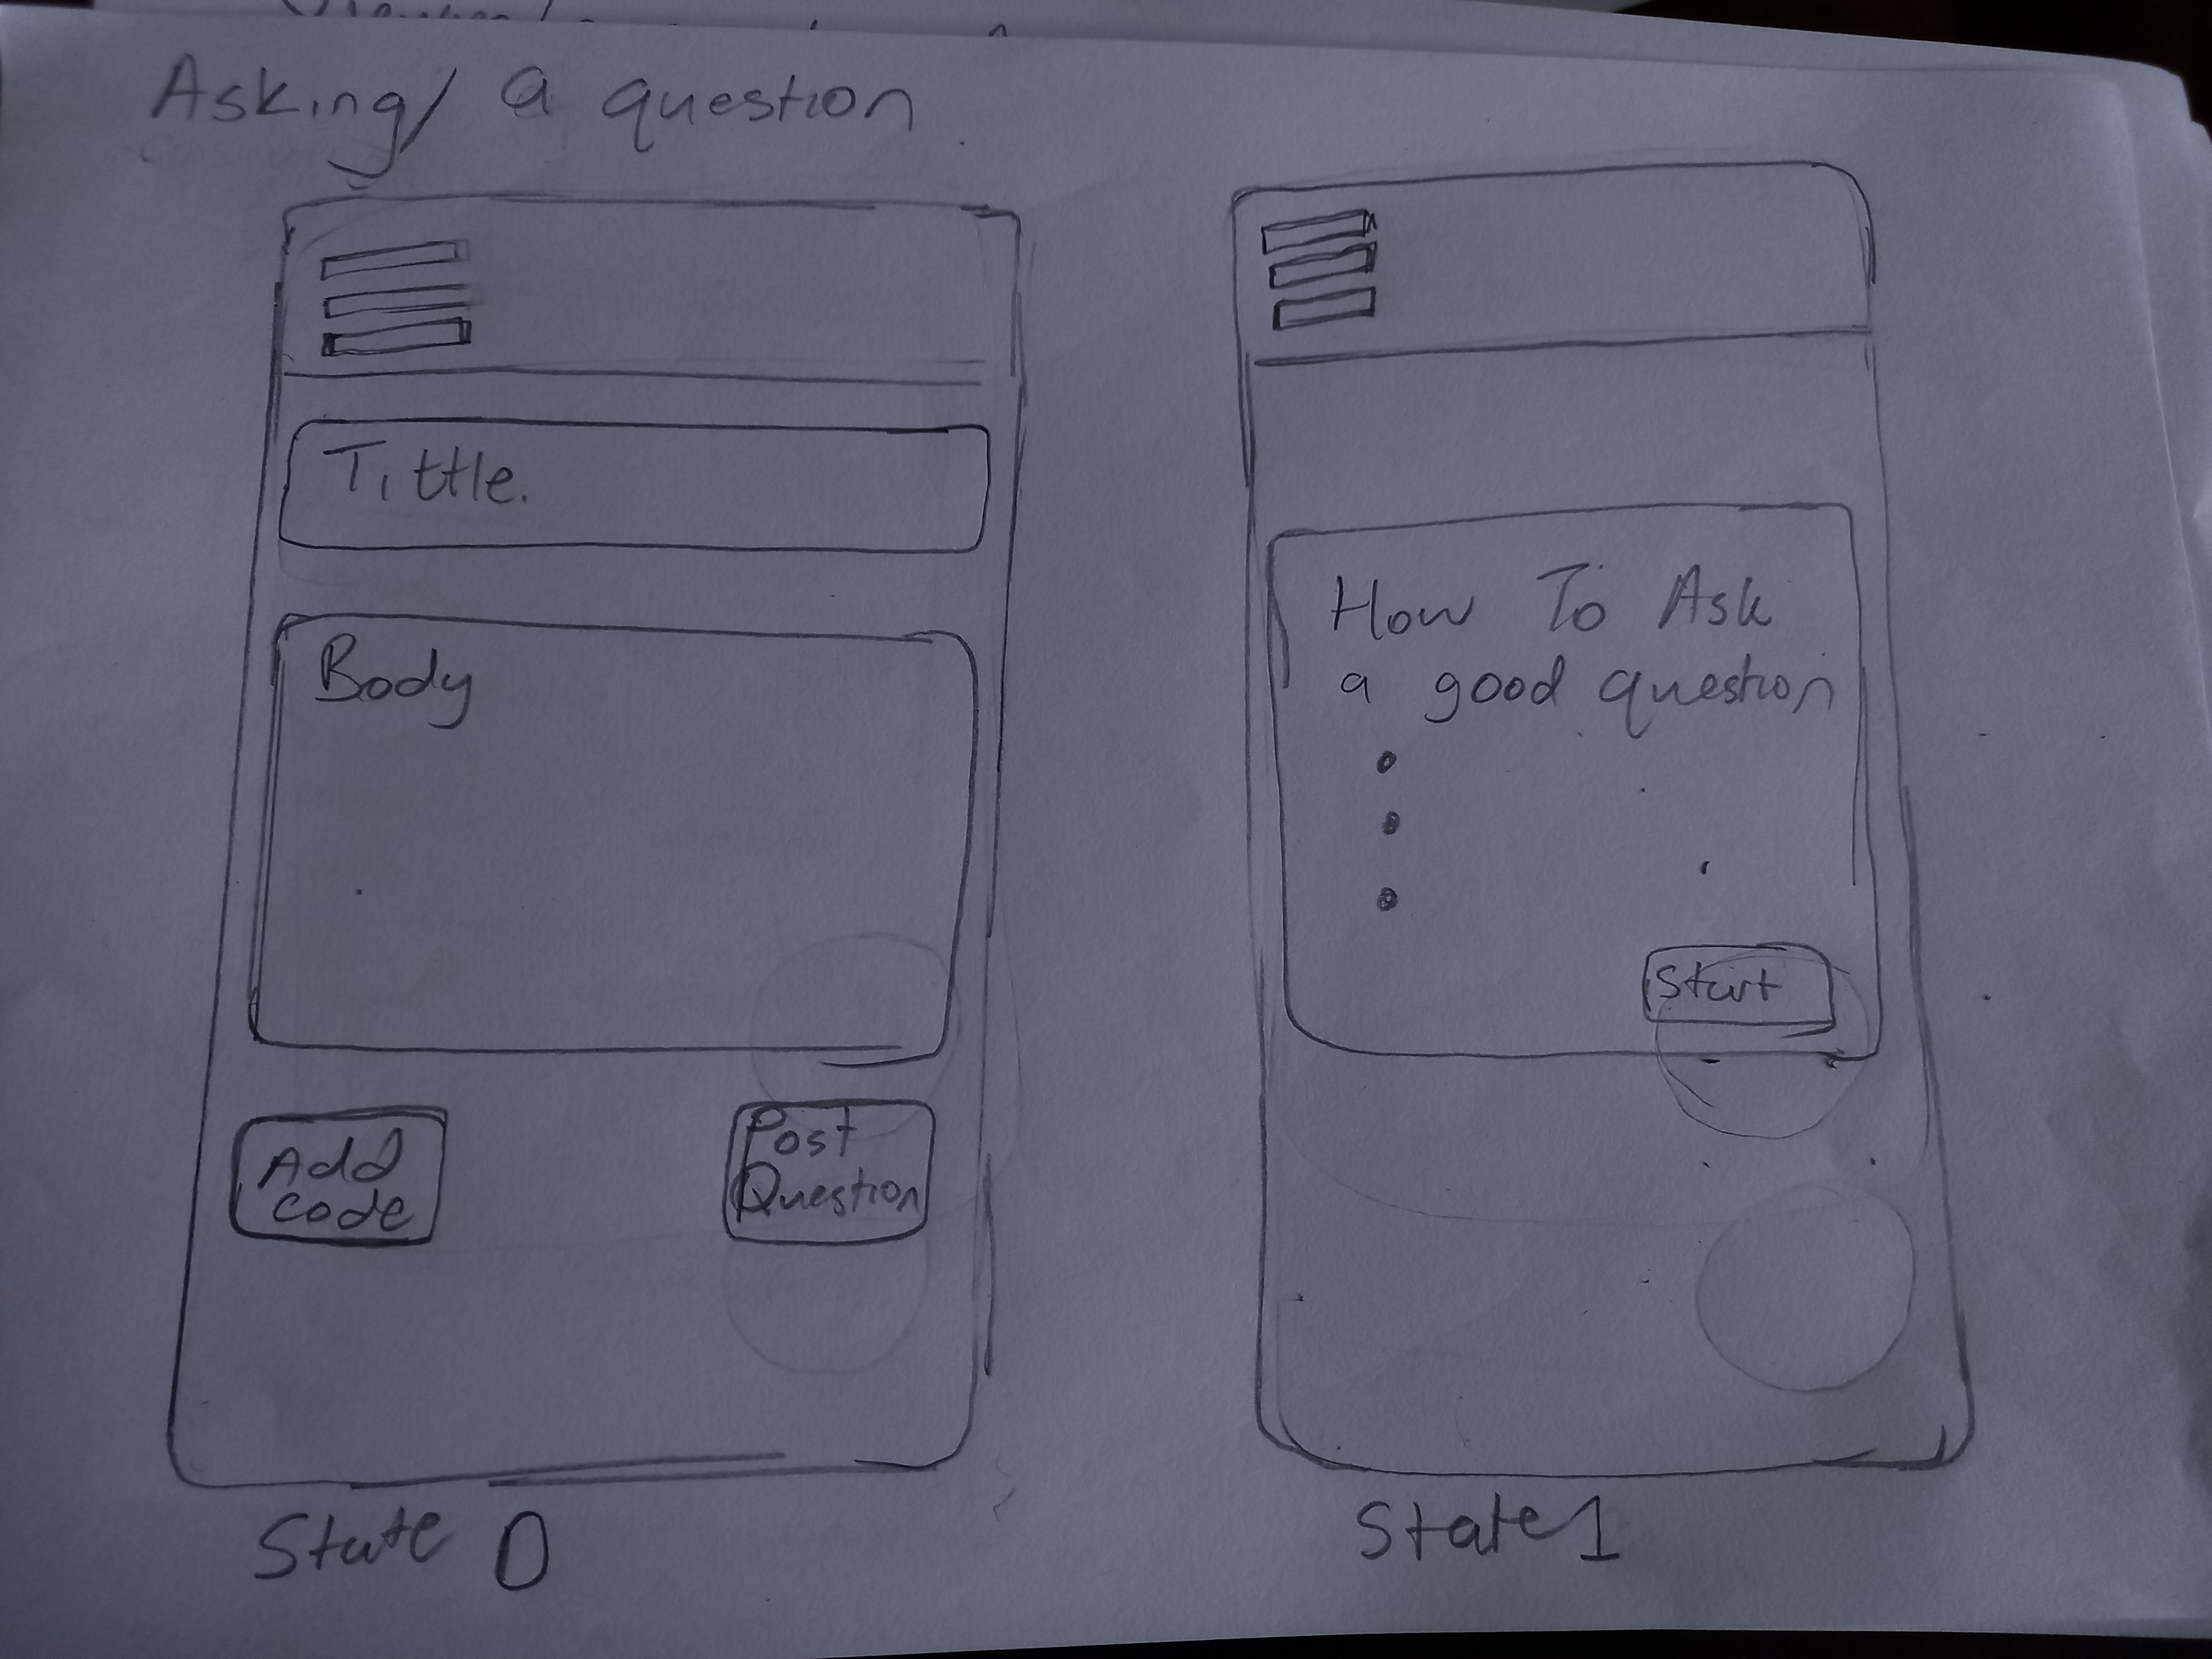 Asking/ a question
Tittle.
Body
Add
code
Post
Question
State 0
How To Ask
a good question
Start
State 1